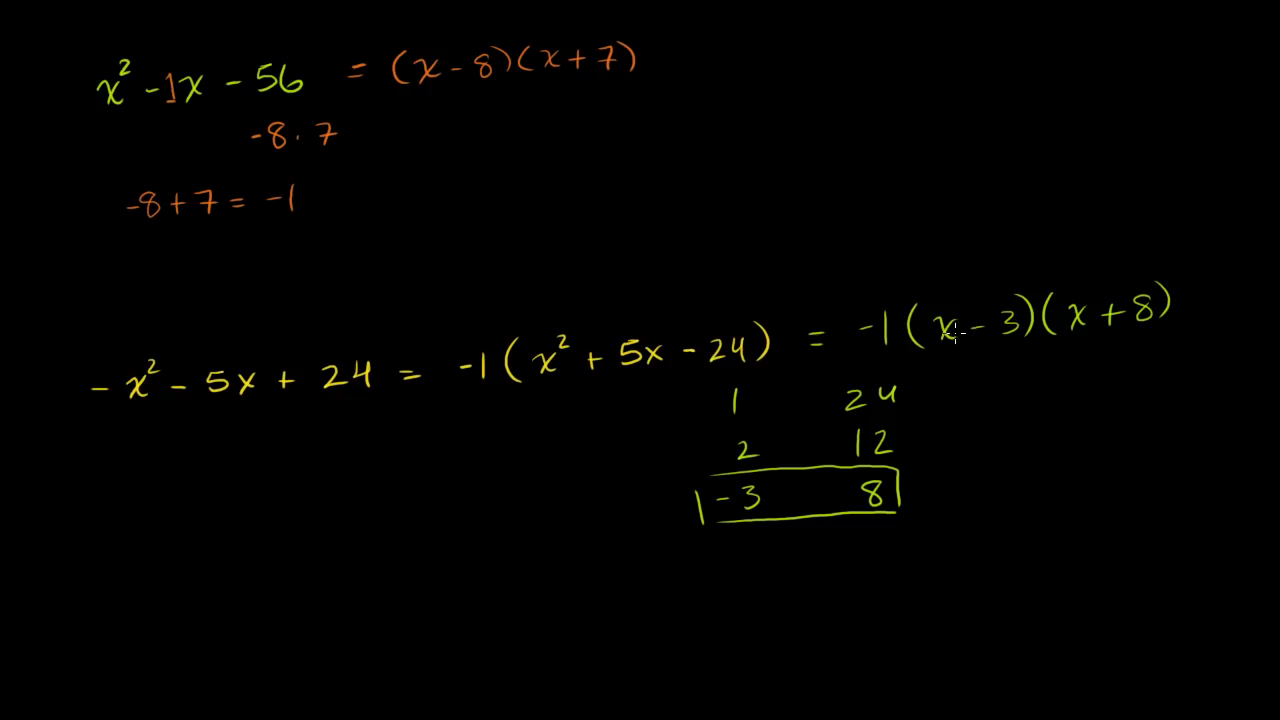 x² - 1x - 56 = (x - 8)(x + 7)
-8 · 7
-8 + 7 = -1
-x² - 5x + 24 = -1(x² + 5x - 24) = -1(x - 3)(x + 8)
1 24
2 12
-3 8